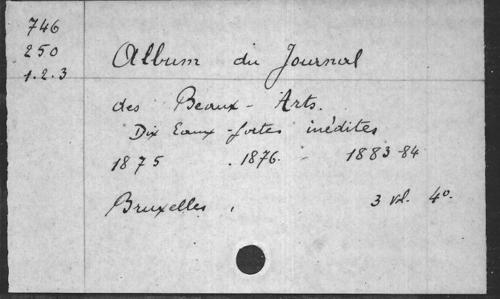 746
250
1.2.3
Album du Journal
des Beaux-Arts.
Dix Eaux-fortes inédites
1875 . 1876. - 1883-84
Bruxelles . 3 vol. 4°.